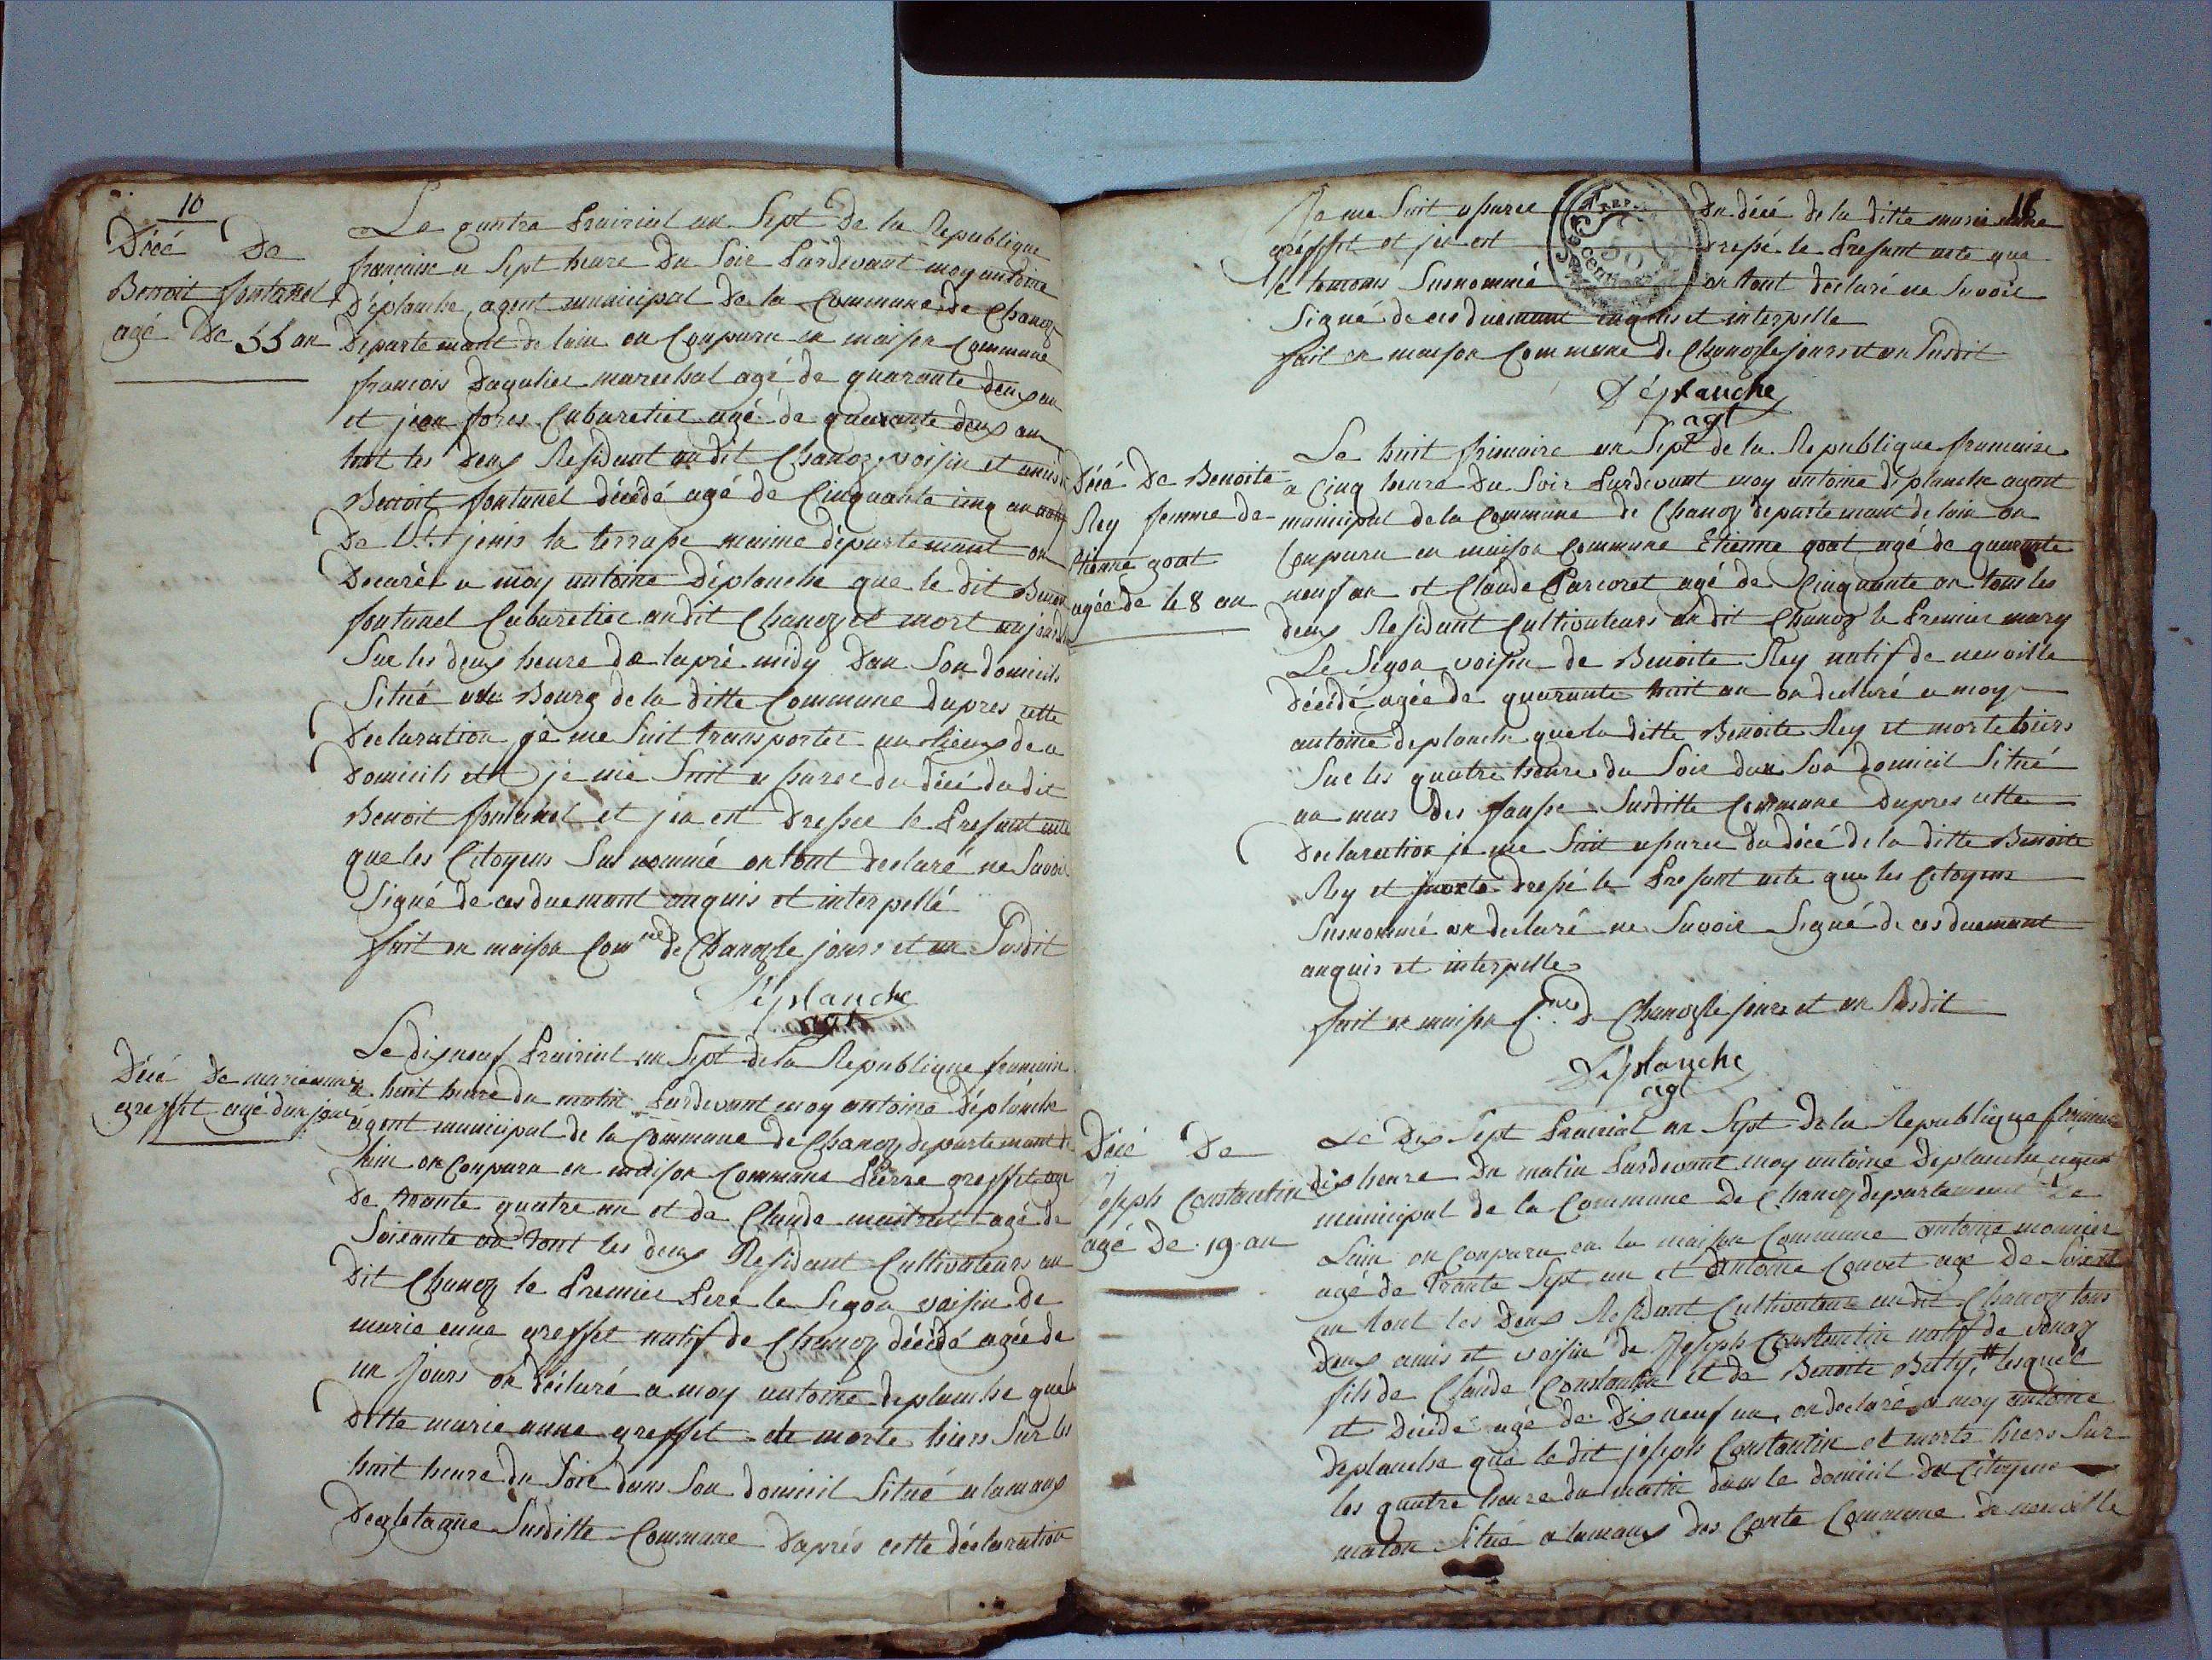 10
Décé De
Benoit fontanel
agé De 55 an
Le quatre Prairial an Sept De la Republique
francaise a Sept heure Du Soir Pardevant moy antoine
Déplanche, agent municipal De la Commune de Chanoz
Departemant de lain on Conparu en maison Commune
francois Dagalier marechal agé de quarante deux an
et jean fores Cabaretier agé de quarante deux an
tout les deux Residant au dit Chanoz, voisin et amis de
Benoit fontanel décédé agé de Cinquante cinq an natif
De St jenis la terrasse maime départemant on
Decarée a moy antoine Déplanche que le dit Benoit
fontanel Cabaretier au dit Chanoz et mort
Sur les deux heure de lapré midy Dan Son domicile
Situé au Bourg de la ditte Commune dapres cette
Declaration je me Suit transporter au lieux de a
Domicile et je me Suit a surer du décé du dit
Benoit fontanel et jen est Dresser le Presant acte
que les Citoyens Sus nommé on tout declaré ne Savoir
Signé de ces duemant anquis et interpellé
fait en maison Comne de Chanoz le jours et an Susdit
Déplanche
agt
Décé De marieanne
greffet agé dun jour
Le dix neuf Prairial an Sept de la Republique francaise
a huit heure du matin Pardevant moy antoine Déplanche
agent municipal de la Commune de Chanoz departemant de
lain on Conparu en maison Commune Pierre greffet agé
De trante quatre an et de Claude maitrait agé de
Soixante an tout les deux Residant Cultivateurs au
Dit Chanoz le Premier Pere le Segon voisin de
marie anne greffet natif de Chanoz décédé agée de
un Jours on déclaré a moy antoine deplanche que la
Ditte marie anne greffet ete morte hiers Sur les
huit heure du Soir dans Son domicil Situé a lamaux
Susditte Commune Daprés cette déclaration
16
Je me Suit a suree Du décé de la ditte marie anne
gréffet et jen est resse le Presant acte que
le temoins Susnommé on tout declaré ne Savoir
Signé de ces duemant anquis et interpelle
fait en maison Commune de Chanoz le jours et an Susdit
Déplanche
agt
Décé De Benoite
Rey femme de
Etienne goat
agée de 48 an
Le huit frimaire an Sept de la Republique francaise
a Cinq heure Du Soir Pardevant moy antoine déplanche agent
municipal de la Commune de Chanoz departemant de lain on
Conparu en maison Commune Etienne goat agé de quarante
neuf an et Claude Parcoret agé de Cinquante an tous les
deux Residant Cultivateurs au dit Chanoz le Premier mary
Le Segon voisin de Benoite Rey natif de neuville
décédé agée de quarante huit an on declaré a moy
antoine deplanche que la ditte Benoite Rey et morte hiers
Sur les quatre heure du Soir dan Son domicil Situé
au mas des fausse Susditte Commune Dapres cette
Declaration je me Suit a suree du décé de la ditte Benoite
Rey et dressé le Presant acte que les Citoyens
Susnommé on declaré ne Savoir Signé de ces duemant
anquis et interpelle
fait en maison Cne de Chanoz le jours et an Susdit
Déplanche
agt
Décé De
joseph Constantin
agé de 19 an
Le Dix Sept Prairial an Sept de la Republique francaise
dix heure Du matin Pardevant moy antoine Deplanche agent
municipal de la Commune De Chanoz departemant De
Lain on Conparu en la maison Commune antoine monnier
agé de Trante Sept an et antoine Couvet age De Soixant
an tout les Deux Residant Cultivateurs au dit Chanoz tous
Deux amis et voisin de Joseph Constantin natif de
fils de Claude Constantin et de Benoite Batty, # lesquel
et Décédé agé de Dix neuf an, on declaré a moy antoine
Deplanche que le dit joseph Constantin et morte hiers Sur
les quatre heure du matin dans le domicil du Citoyens
maton Situé a lamaux des Conte Commune De neuville